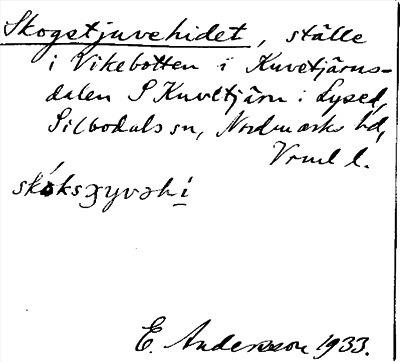 Skogstjuvehidet, ställe
i Vikebotten i Kuvetjärns-
dalen S Kuvetjärn i Lysed,
Silbodals sn, Nordmarks hd,
Vrml l.
skóksʒyvəhi
E. Andersson 1933.